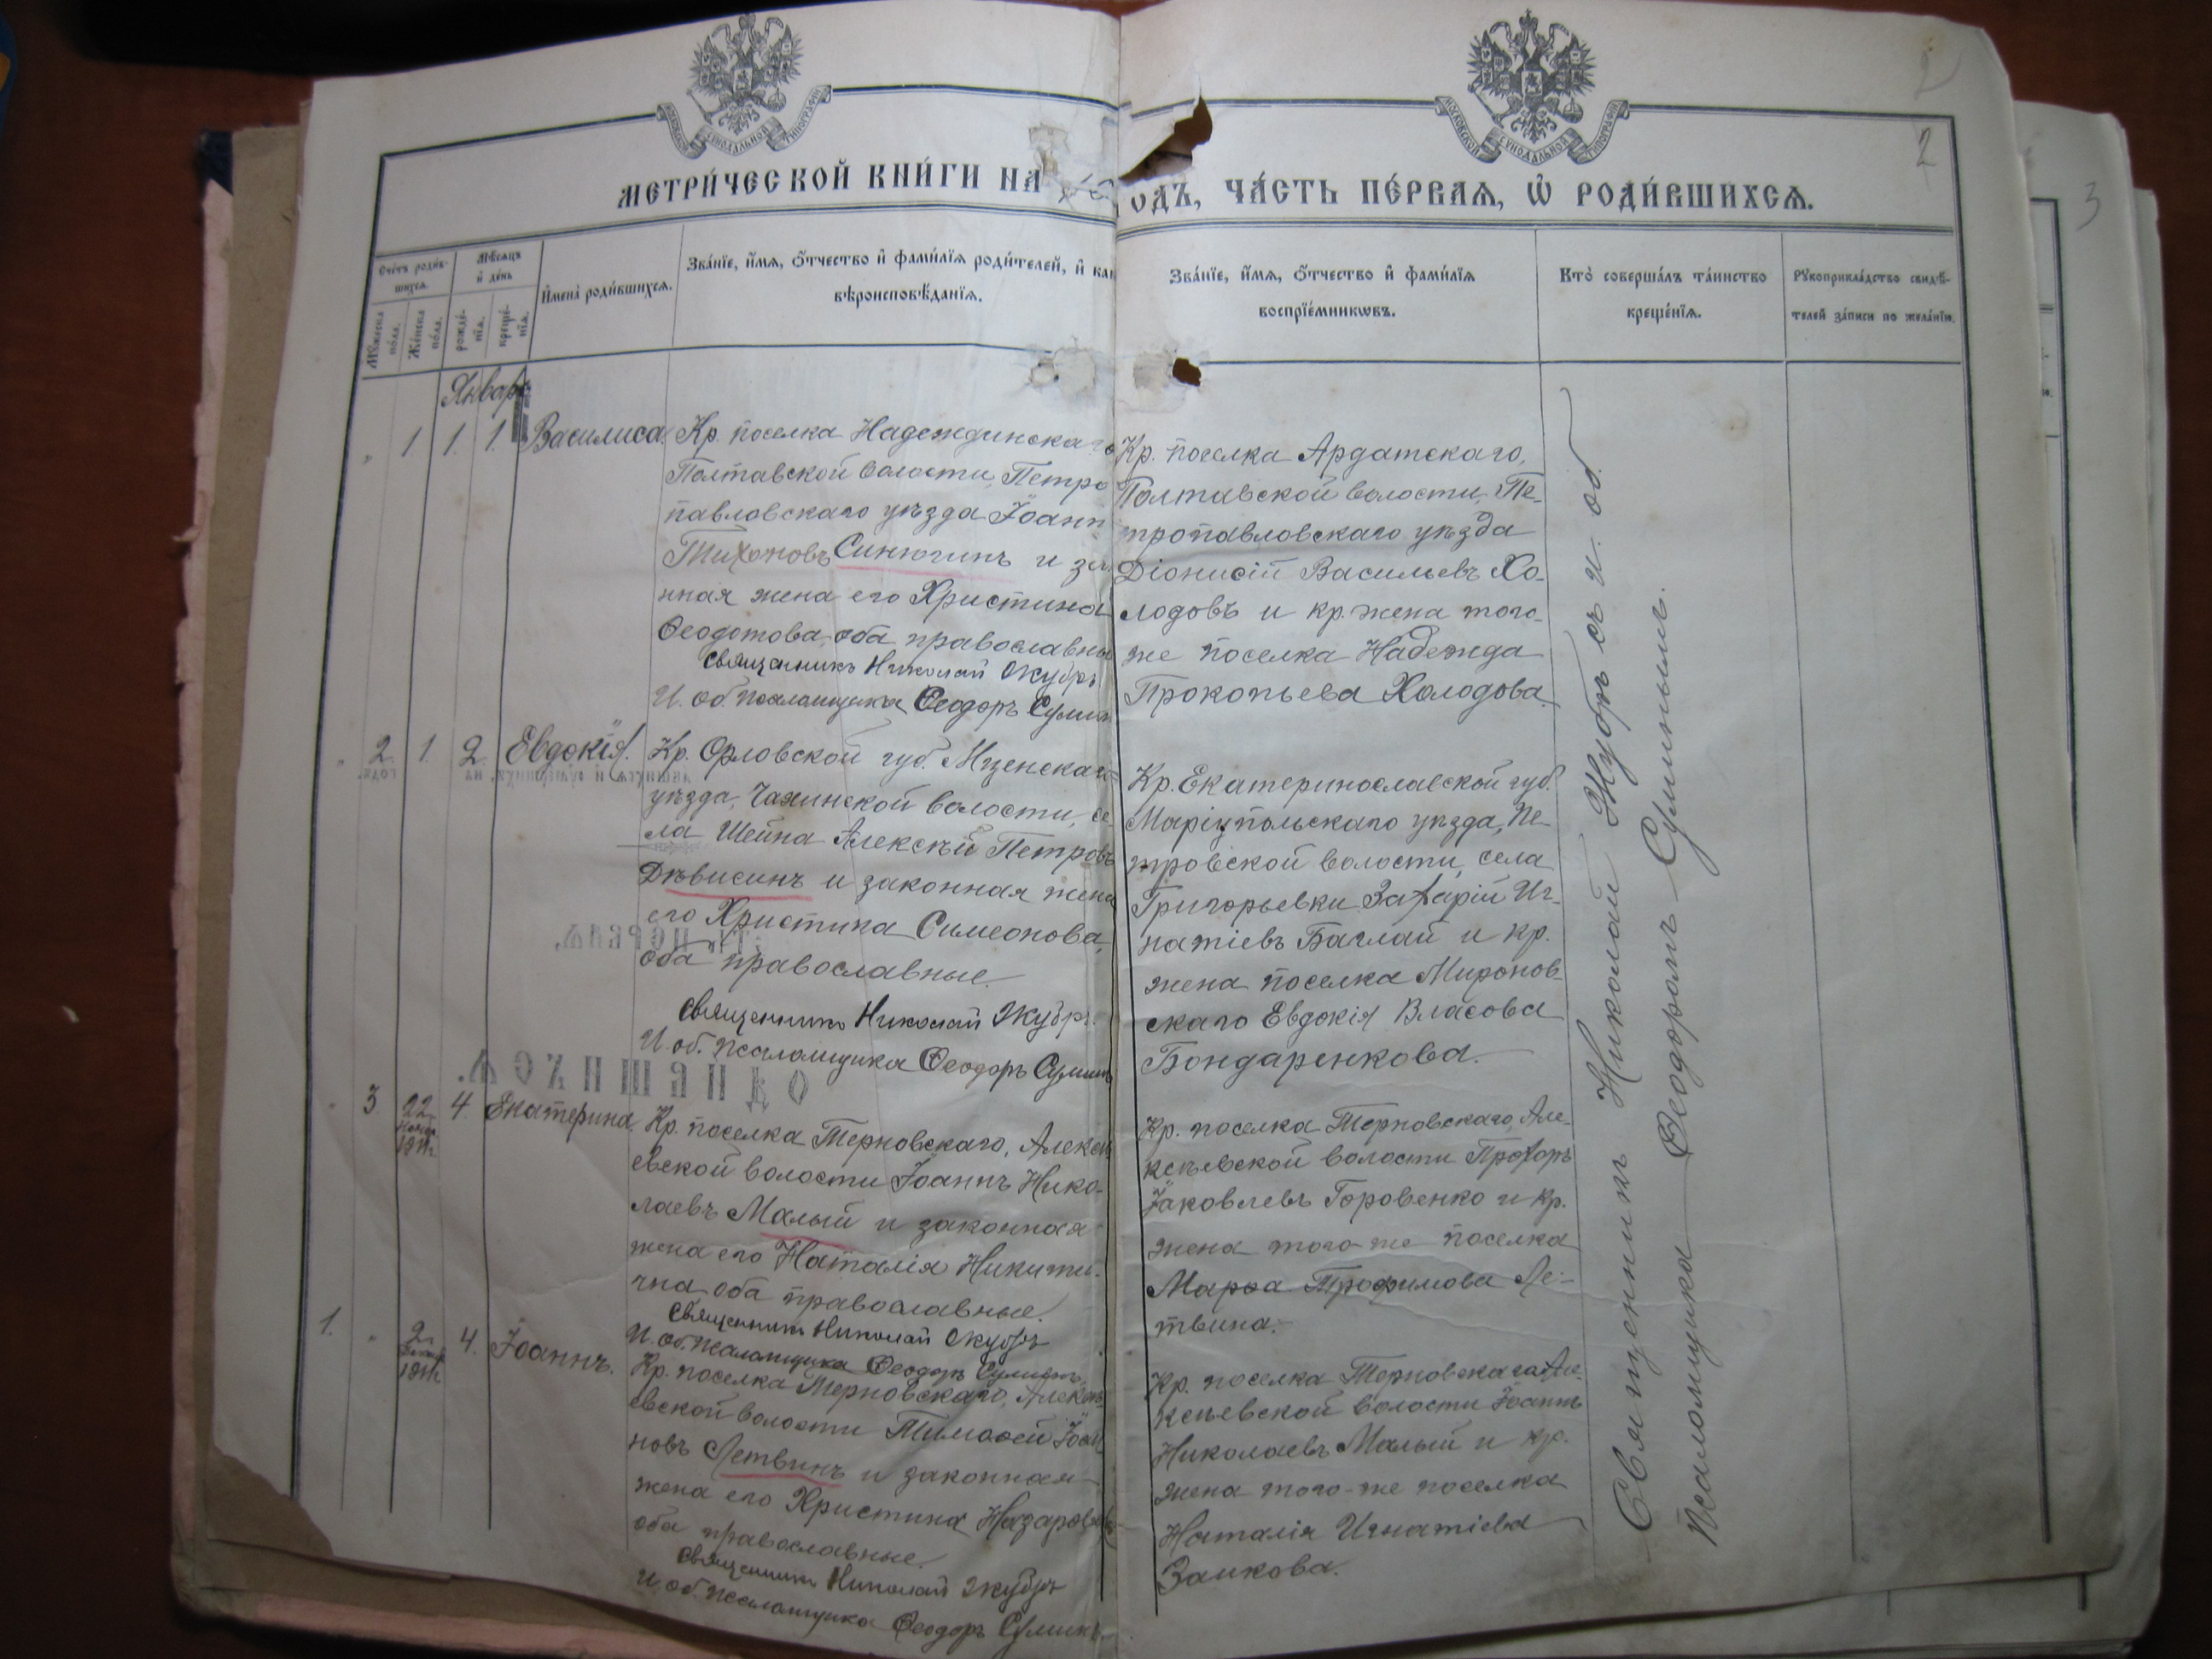 МОСКОВСКОЙ СѴНОДАЛЬНОЙ ТИПОГРАФІИ
МОСКОВСКОЙ СѴНОДАЛЬНОЙ ТИПОГРАФІИ
2
2
3
МЕТРИ́ЧЕСКОЙ КНИ́ГИ НА
ОДЪ, ЧА́СТЬ ПЕ́РВАЯ, Ѡ҆ РОДИ́ВШИХСѦ.
Сче́тъ роди́в-
шихсѧ.
Мꙋ́жеска по́ла.
Же́нска по́ла.
Мѣ́сѧцъ
и҆ де́нь
рожде́-
нїѧ.
креще́-
нїѧ.
И҆мена̀ роди́вшихсѧ.
Зва́нїе, и҆́мѧ, ѻ҆́тчество и҆ фами́лїѧ роди́телей, и҆ как
вѣроисповѣ́данїѧ.
Зва́нїе, и҆́мѧ, ѻ҆́тчество и҆ фами́лїѧ
воспрїе́мникѡвъ.
Кто̀ соверша́лъ та́инство
креще́нїѧ.
Рꙋкоприкла́дство свидѣ́-
телей за́писи по жела́нїю.
Январь
" 1 1. 1. Василиса.
Кр. поселка Надеждинскаго
Полтавской волости, Петро
павловскаго уѣзда Іоанн
Тихоновъ Синюгинъ и зак
нная жена его Христина
Ѳеодотова, оба православны
Священникъ Николай Жубръ
И. об. псаломщика Ѳеодоръ Сумин
Кр. поселка Ардатскаго,
Полтавской волости, Пе-
тропавловскаго уѣзда
Діонисій Васильевъ Хо-
лодовъ и кр. жена того-
же поселка Надежда
Прокопьева Холодова.
" 2. 1. 2. Евдокія.
Кр. Орловской губ. Мценскаго
уѣзда, Чахинской волости, се-
ла Шейна Алексѣй Петровъ
Дѣвисинъ и законная жена
его Христина Симеонова,
оба православные.
Священникъ Николай Жубръ.
И. об. псаломщика Ѳеодоръ Суминъ
Кр. Екатеринославской губ.
Маріупольскаго уѣзда, Пе-
тровской волости, села
Григорьевки Захарій Иг-
натіевъ Баглай и кр.
жена поселка Миронов-
скаго Евдокія Власова
Бондаренкова.
" 3. 22 4. Екатерина.
Кр. поселка Терновскаго, Алексѣ
евской волости Іоаннъ Нико-
лаевъ Малый и законная
жена его Наталія Никити-
чна, оба православные.
Священникъ Николай Жубръ
И. об. псаломщика Ѳеодоръ Суминъ.
Кр. поселка Терновскаго, Але-
ксѣевской волости Прохоръ
Іаковлевъ Горовенко и кр.
жена того-же поселка
Марѳа Трофимова Ле-
твина.
1. " 2 4. Іоаннъ.
Кр. поселка Терновскаго, Алексѣ
евской волости Тимоѳей Іоан
новъ Летвинъ и законная
жена его Христина Назарова
оба православные.
Священникъ Николай Жубръ
И. об. псаломщика Ѳеодоръ Суминъ.
Кр. поселка Терновскаго Але-
ксѣевской волости Іоаннъ
Николаевъ Малый и кр.
жена того-же поселка
Наталія Игнатіева
Заикова.
Священникъ Николай Жубръ съ и. об.
Псаломщика Ѳеодоромъ Суминымъ.